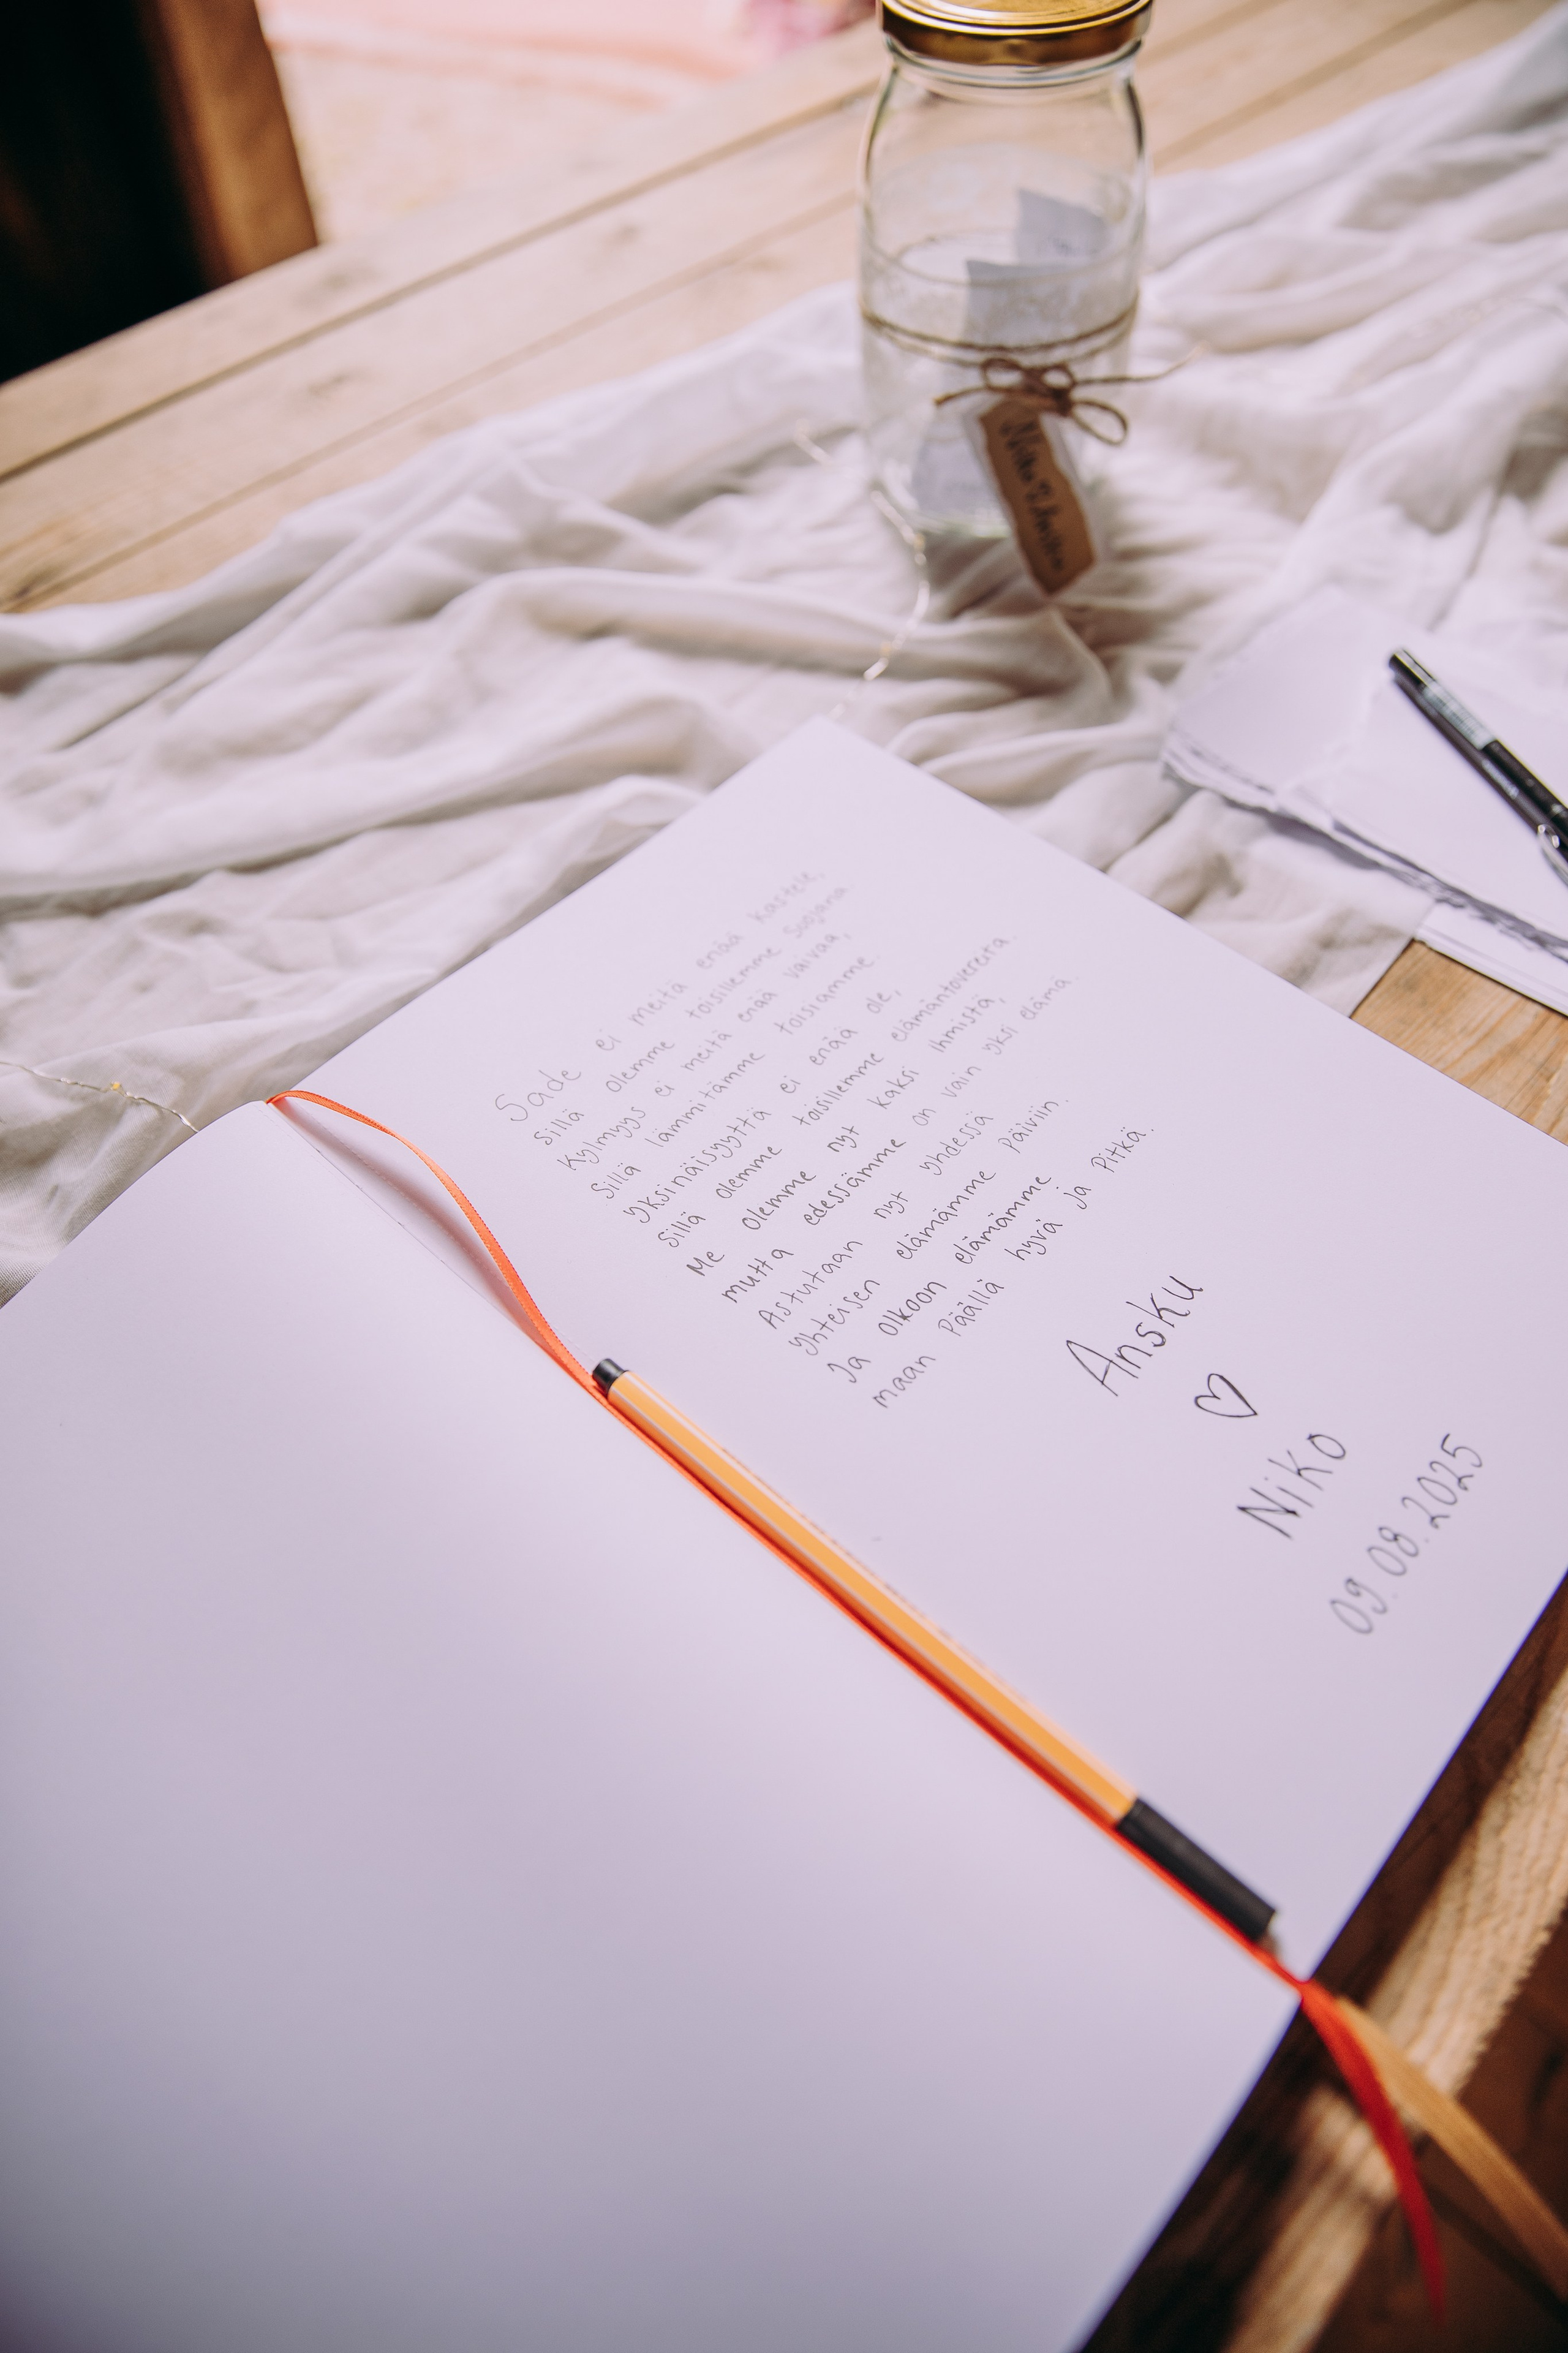 Sade ei meitä enää kastele,
Sillä olemme toisillemme suojana
Kylmyys ei meitä enää vaivaa,
Sillä lämmitämme toisiamme.
yksinäisyyttä ei enää ole,
Sillä olemme toisillemme elämäntovereita.
Me olemme nyt kaksi ihmistä,
mutta edessämme on vain yksi elämä.
Astutaan nyt yhdessä
yhteisen elämämme Päiviin.
Ja olkoon elämämme
maan Päällä hyvä ja Pitkä.
Ansku
♡
Niko
09.08.2025